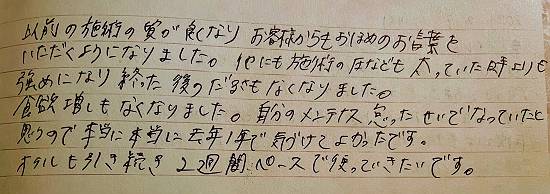 以前の施術の質が良くなり お客様からもおほめのお言葉を
いただくようになりました。他にも施術の圧なども 太っていた時よりも
強めになり 終った後のだるさもなくなりました。
食欲増しもなくなりました。自分のメンテナンス怠ったせいでなっていたと
思うので 本当に本当に去年1年で気づけてよかったです。
引き続き 2週間ペースで使っていきたいです。